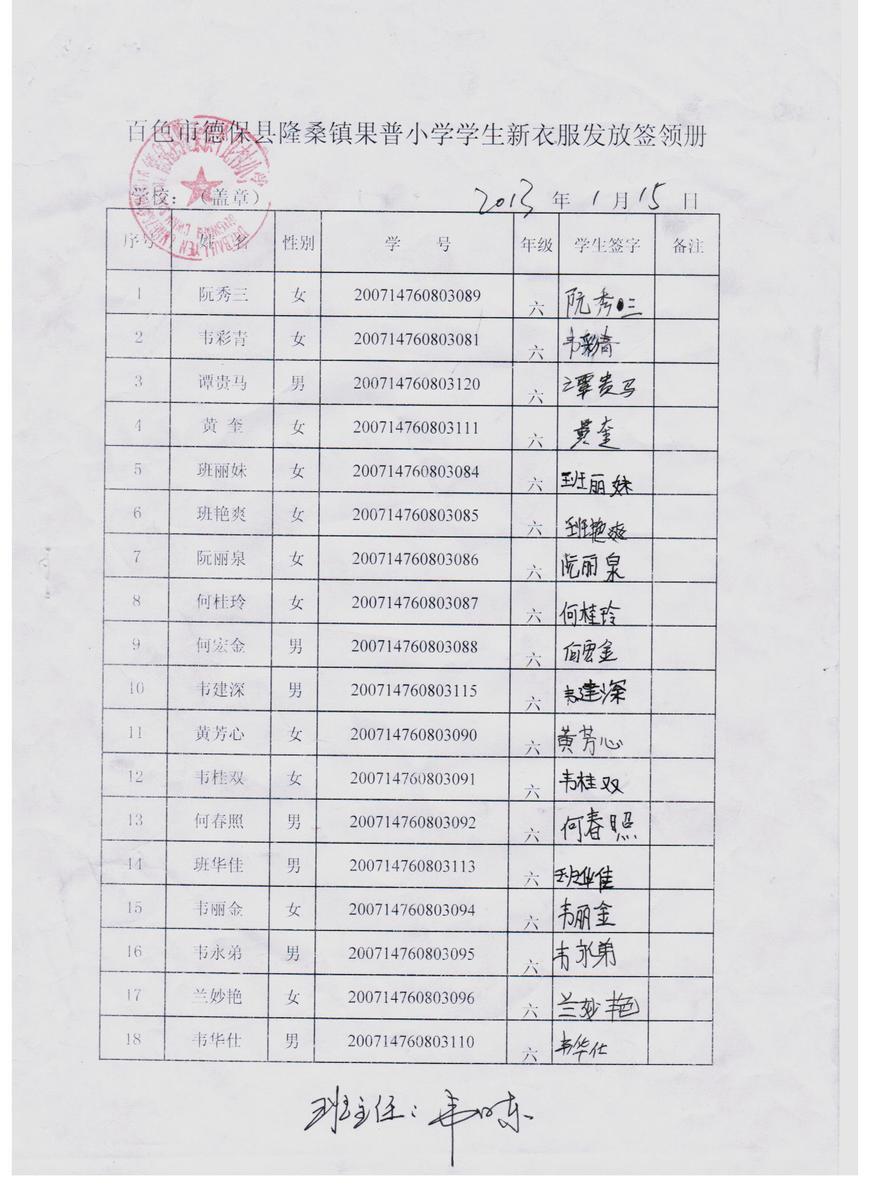 百色市德保县隆桑镇果普小学学生新衣服发放签领册
学校：（盖章） 2013 年 1 月 15 日
序号 姓 名 性别 学 号 年级 学生签字 备注
1 阮秀三 女 200714760803089 六 阮秀三
2 韦彩青 女 200714760803081 六 韦彩青
3 谭贵马 男 200714760803120 六 谭贵马
4 黄 奎 女 200714760803111 六 黄奎
5 班丽妹 女 200714760803084 六 班丽妹
6 班艳爽 女 200714760803085 六 班艳爽
7 阮丽泉 女 200714760803086 六 阮丽泉
8 何桂玲 女 200714760803087 六 何桂玲
9 何宏金 男 200714760803088 六 何宏金
10 韦建深 男 200714760803115 六 韦建深
11 黄芳心 女 200714760803090 六 黄芳心
12 韦桂双 女 200714760803091 六 韦桂双
13 何春照 男 200714760803092 六 何春照
14 班华佳 男 200714760803113 六 班华佳
15 韦丽金 女 200714760803094 六 韦丽金
16 韦永弟 男 200714760803095 六 韦永弟
17 兰妙艳 女 200714760803096 六 兰妙艳
18 韦华仕 男 200714760803110 六 韦华仕
班主任：韦